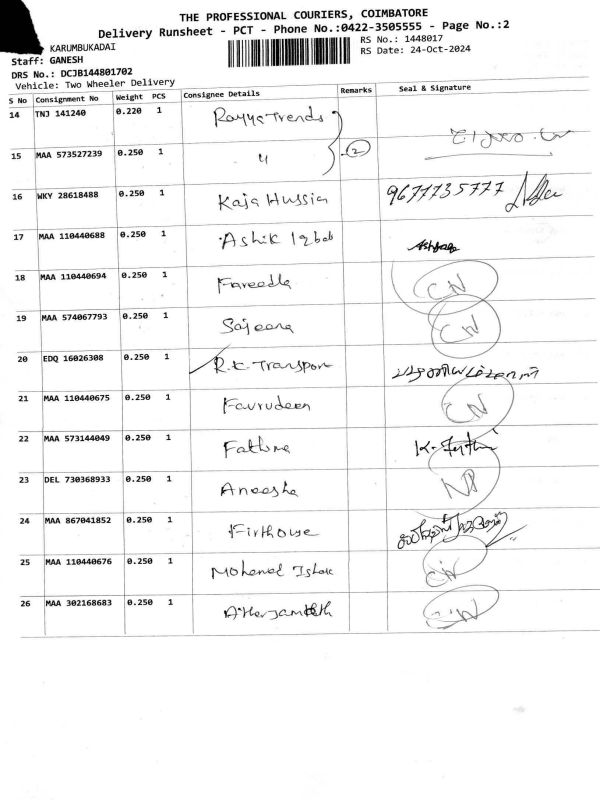 THE PROFESSIONAL COURIERS, COIMBATORE
Delivery Runsheet - PCT - Phone No.:0422-3505555 - Page No.:2
KARUMBUKADAI
RS No.: 1448017
Staff: GANESH
RS Date: 24-Oct-2024
DRS No.: DCJB144801702
Vehicle: Two Wheeler Delivery
S No Consignment No Weight PCS Consignee Details Remarks Seal & Signature
14 TNJ 141240 0.220 1 Rayya Trends
15 MAA 573527239 0.250 1 " 2
16 WKY 28618488 0.250 1 Kaja Hussia 9677735777
17 MAA 110440688 0.250 1 Ashik Iqbab
18 MAA 110440694 0.250 1 Fareedla CN
19 MAA 574067793 0.250 1 Sajeena CN
20 EDQ 16026308 0.250 1 R.K. Transport
21 MAA 110440675 0.250 1 Favrudeen CN
22 MAA 573144049 0.250 1 Fathima
23 DEL 730368933 0.250 1 Aneesha
24 MAA 867041852 0.250 1 Firthouse
25 MAA 110440676 0.250 1 Mohamed Ishak CN
26 MAA 302168683 0.250 1 CN